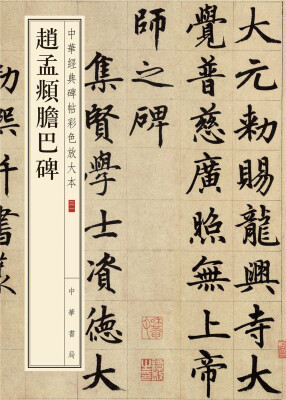 大元勅賜龍興寺大
覺普慈廣照無上帝
師之碑
集賢學士資德大
中華經典碑帖彩色放大本
中華書局
趙孟頫膽巴碑
書